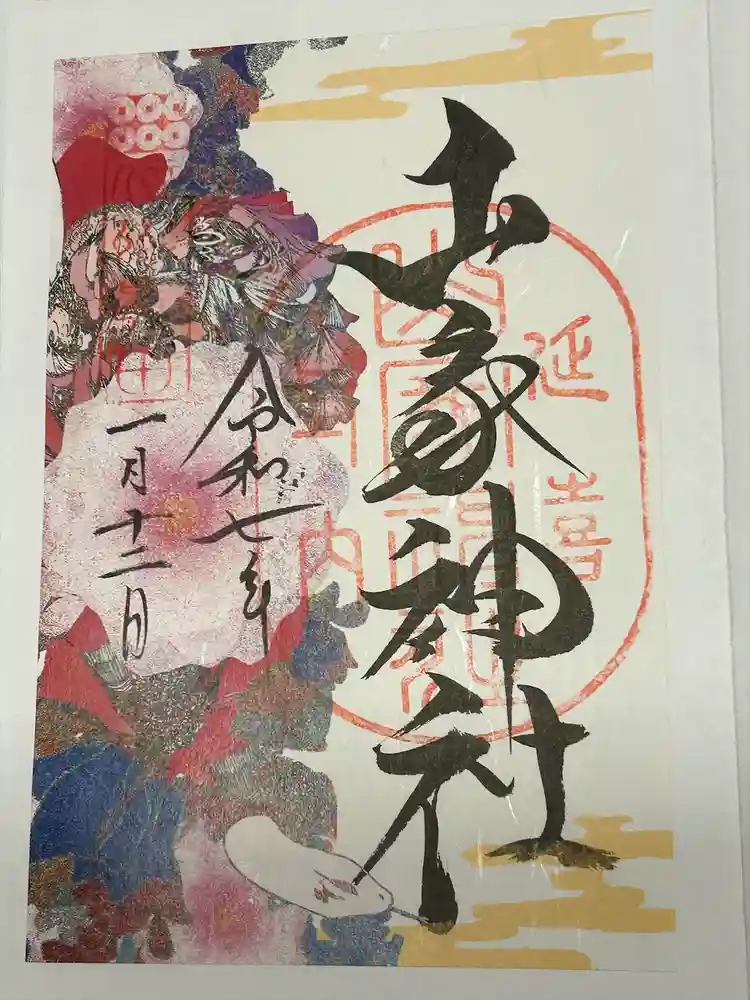 延喜
式内
山家神社
令和七年
一月十二日